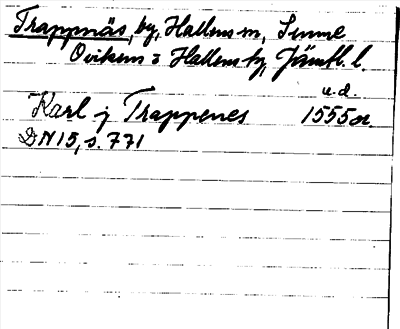 Trappnäs, by, Hallens sn, Sunne
Oviken o Hallens tg, Jämtl. l.
u.d.
Karl j Trappenes 1555 or.
DN 15, s. 771